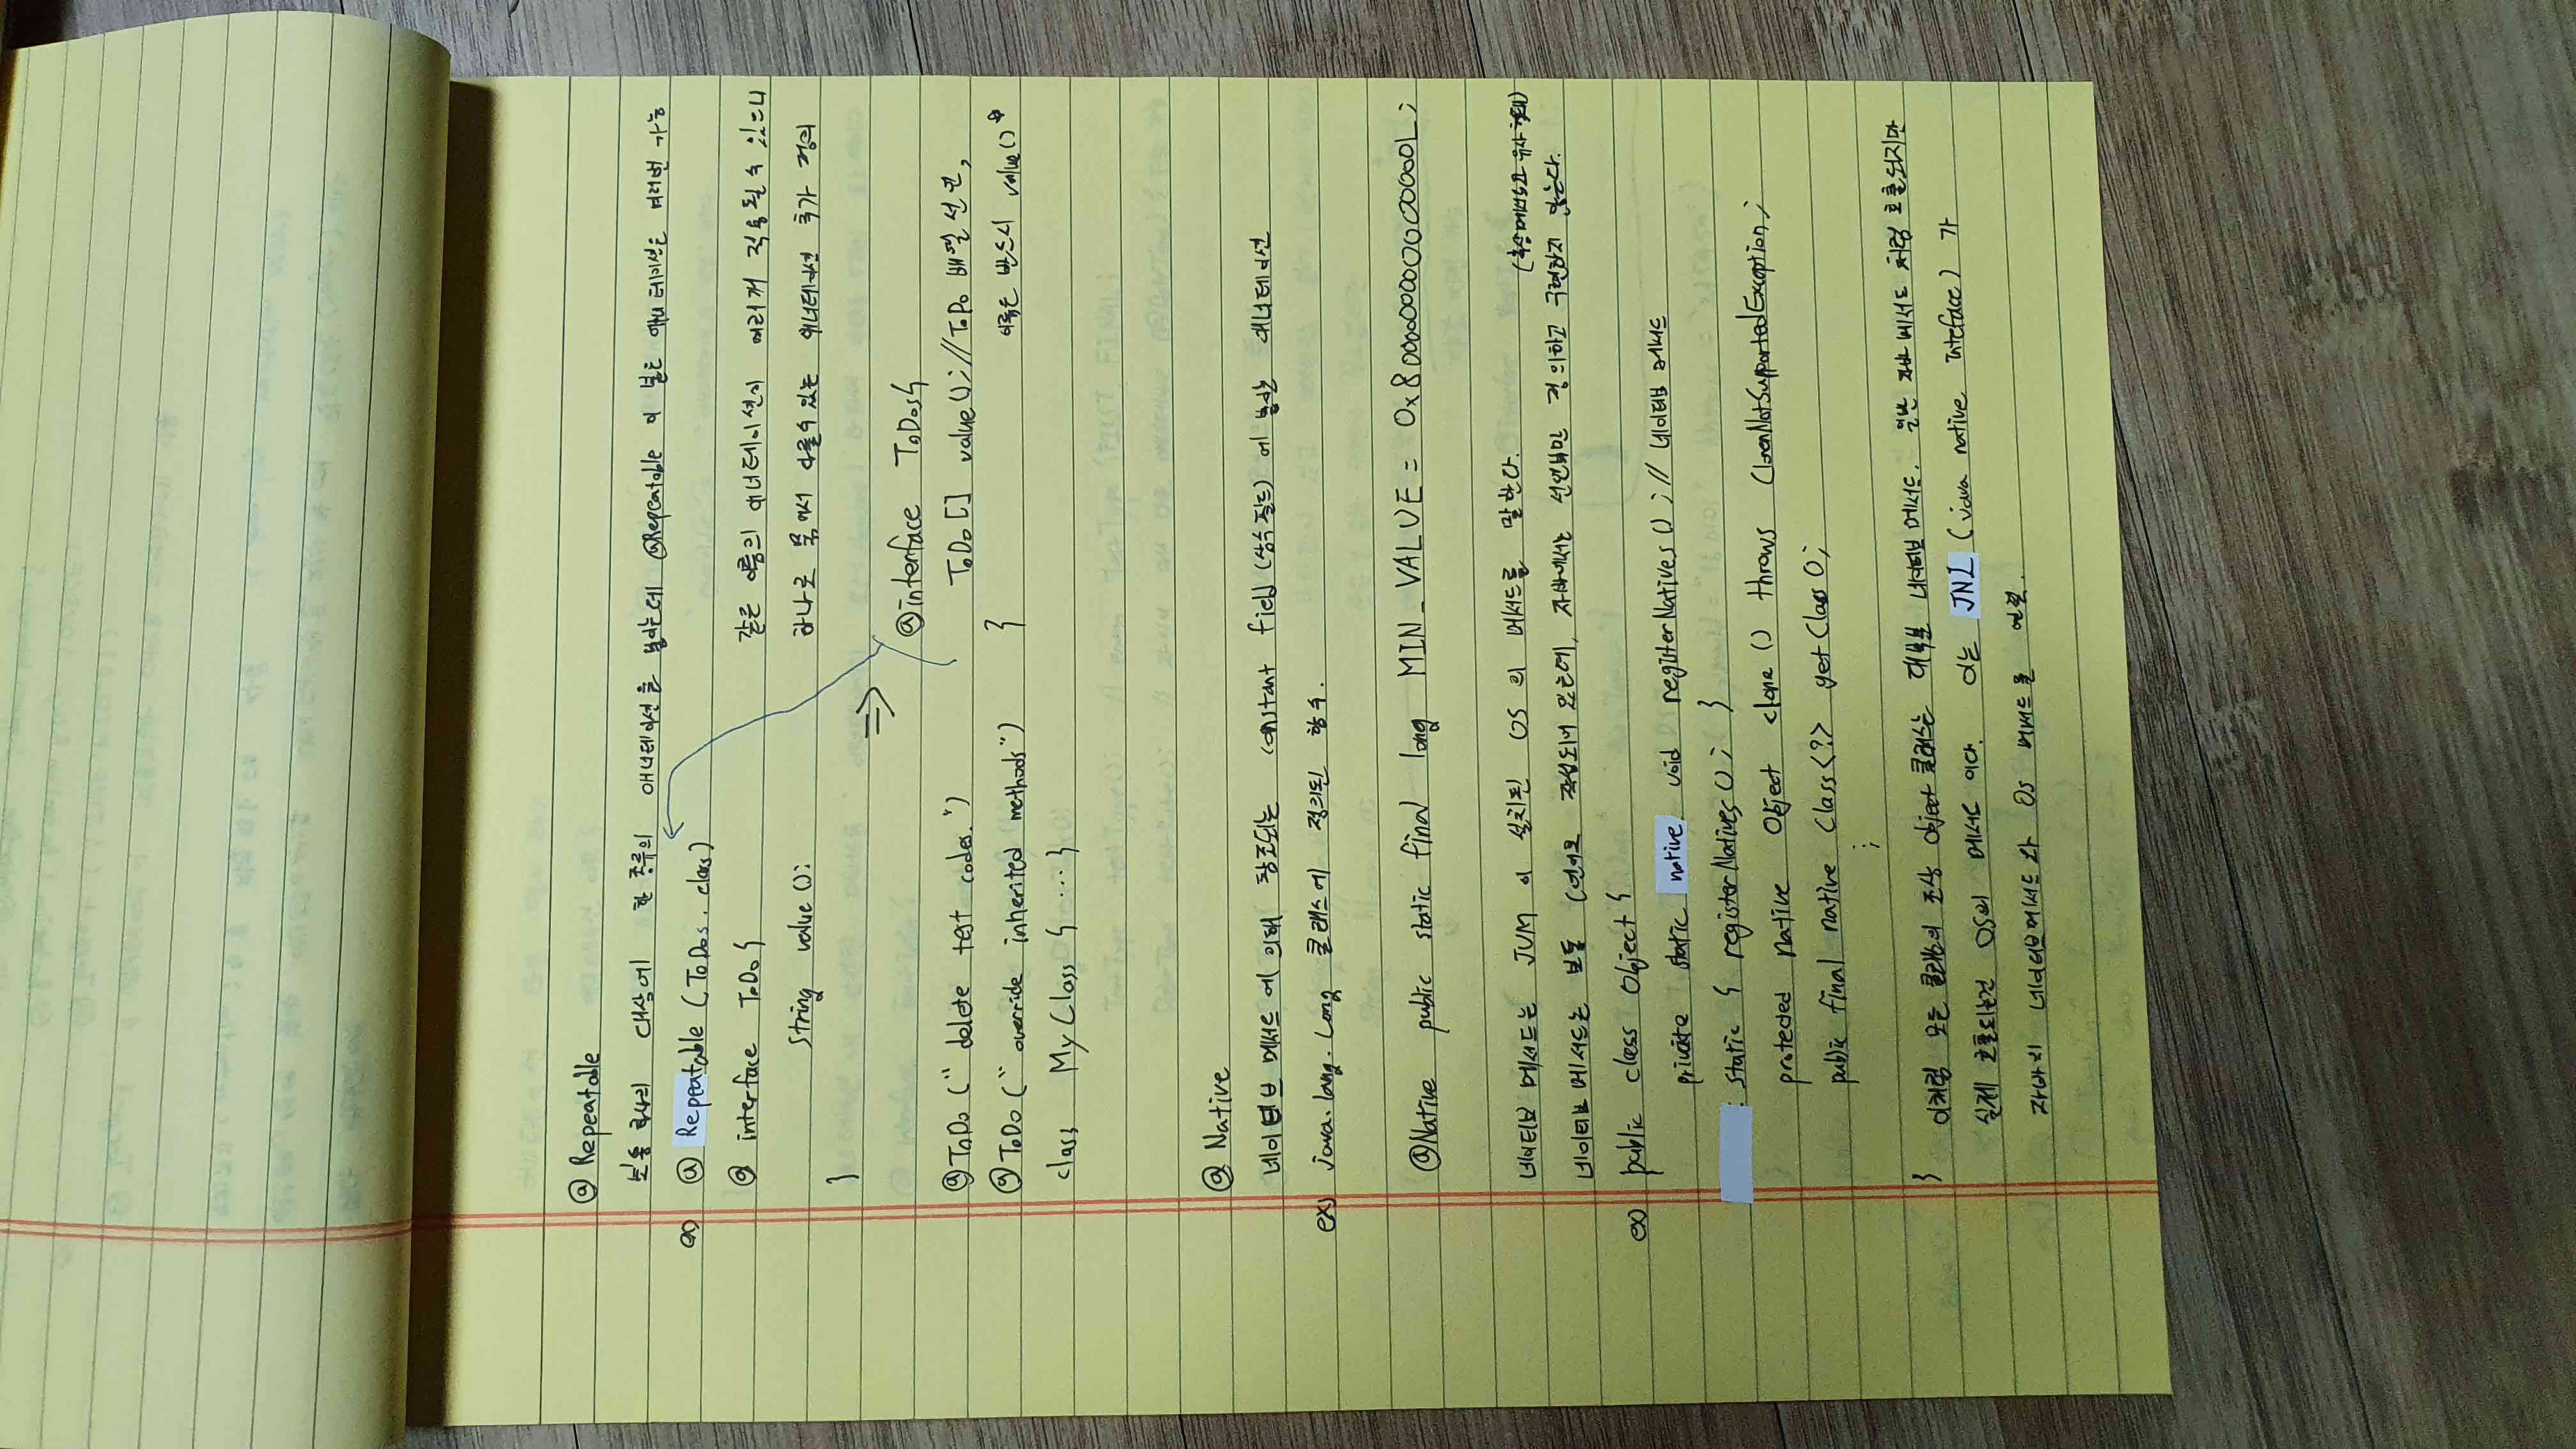 @ Repeatable
보통 하나의 대상에 한 종류의 애너테이션을 붙이는데 @Repeatable 이 붙은 애너테이션은 여러번 가능
ex) @ Repeatable (ToDos. class)
@ interface ToDo {
String value();
}
@ToDo (" delete test codes.")
@ToDo (" override inherited methods")
class MyClass { ... }
같은 이름의 애너테이션이 여러개 적용될 수 있으니
하나로 묶어서 다룰수 있는 애너테이션 추가 정의
⇒ @interface ToDos{
ToDo [] value(); // ToDo 배열 선언,
이름은 반드시 value()
}
@ Native
네이티브 메서드 에 의해 참조되는 constant field (상수 필드) 에 붙이는 애너테이션
ex) java. lang. Long 클래스에 정의된 함수.
@Native public static final long MIN_VALUE = 0x8000000000000000L;
네이티브 메서드는 JVM 이 설치된 OS 의 메서드를 말한다.
(추상메서드와 유사 형태)
네이티브 메서드는 보통 C언어로 작성되어 있는데, 자바에서는 선언부만 정의하고 구현하지 않는다.
ex) public class Object {
private static native void registerNatives () ; // 네이티브 메서드
static { registerNatives (); }
protected native Object clone () throws ClonenNotSupportedException;
public final native Class<?> getClass();
;
} 이처럼 모든 클래스의 조상 Object 클래스는 대부분 네이티브 메서드. 일반 자바 메서드 처럼 호출되지만
실제 호출되는건 OS의 메서드 이다. 이는 JNI (java native inteface) 가
자바의 네이티브메서드와 OS 메서드를 연결.